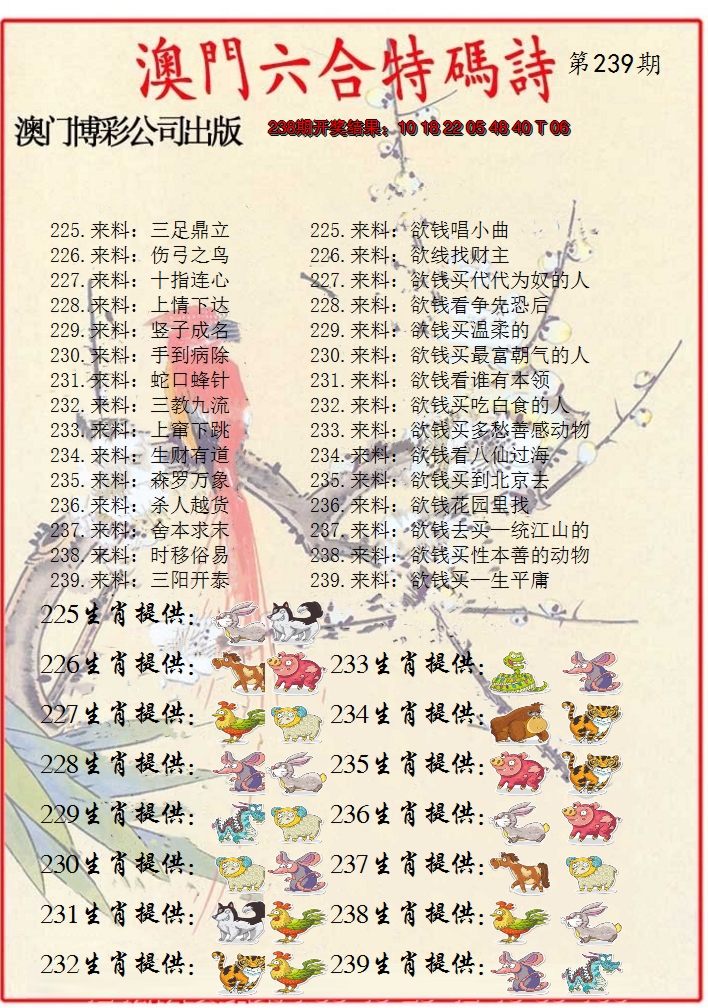 澳門六合特碼詩 第239期
澳门博彩公司出版 238期开奖结果：10 18 22 05 48 40 T 06
225.来料：三足鼎立 225.来料：欲钱唱小曲
226.来料：伤弓之鸟 226.来料：欲线找财主
227.来料：十指连心 227.来料：欲钱买代代为奴的人
228.来料：上情下达 228.来料：欲钱看争先恐后
229.来料：竖子成名 229.来料：欲钱买温柔的
230.来料：手到病除 230.来料：欲钱买最富朝气的人
231.来料：蛇口蜂针 231.来料：欲钱看谁有本领
232.来料：三教九流 232.来料：欲钱买吃白食的人
233.来料：上窜下跳 233.来料：欲钱买多愁善感动物
234.来料：生财有道 234.来料：欲钱看八仙过海
235.来料：森罗万象 235.来料：欲钱买到北京去
236.来料：杀人越货 236.来料：欲钱花园里找
237.来料：舍本求末 237.来料：欲钱去买一统江山的
238.来料：时移俗易 238.来料：欲钱买性本善的动物
239.来料：三阳开泰 239.来料：欲钱买一生平庸
225生肖提供：
226生肖提供： 233生肖提供：
227生肖提供： 234生肖提供：
228生肖提供： 235生肖提供：
229生肖提供： 236生肖提供：
230生肖提供： 237生肖提供：
231生肖提供： 238生肖提供：
232生肖提供： 239生肖提供：